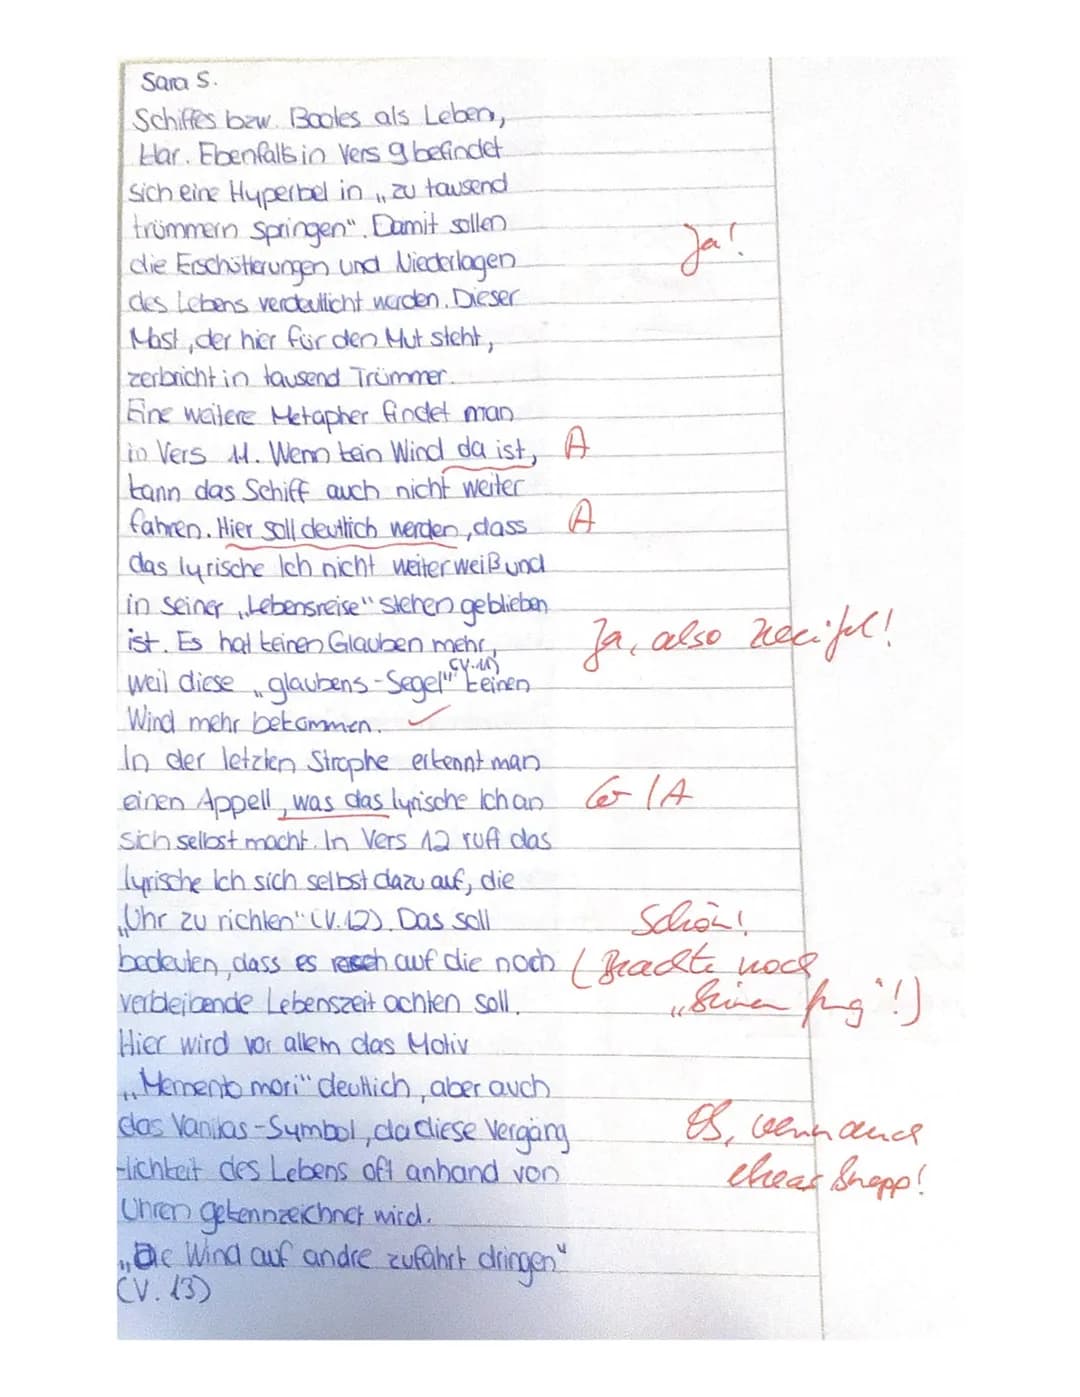 Sara S.
Schiffes bzw. Bootes als Leben,
klar. Ebenfalls in Vers 9 befindet
sich eine Hyperbel in „zu tausend
trümmern springen“. Damit sollen
Ja!
die Erschütterungen und Niederlagen
des Lebens verdeutlicht werden. Dieser
Mast, der hier für den Mut steht,
zerbricht in tausend Trümmer.
Eine weitere Metapher findet man
in Vers 11. Wenn kein Wind da ist, A
kann das Schiff auch nicht weiter
fahren. Hier soll deutlich werden, dass A
das lyrische Ich nicht weiter weiß und
in seiner „Lebensreise“ stehen geblieben
ist. Es hat keinen Glauben mehr, Ja, also Zweifel!
weil diese „glaubens-Segel“ (V.11) keinen
Wind mehr bekommen. ✓
In der letzten Strophe erkennt man
einen Appell, was das lyrische Ich an Gr/A
sich selbst macht. In Vers 12 ruft das
lyrische Ich sich selbst dazu auf, die
„Uhr zu richten“ (V.12). Das soll Schön!
bedeuten, dass es auf die noch (Beachte noch
verbleibende Lebenszeit achten soll. !)
Hier wird vor allem das Motiv
„Memento mori“ deutlich, aber auch
das Vanitas-Symbol, da diese Vergäng wenn auch
-lichkeit des Lebens oft anhand von etwas knapp!
Uhren gekennzeichnet wird.
„Die Wind auf andre zufahrt dringen“
(V. 13)